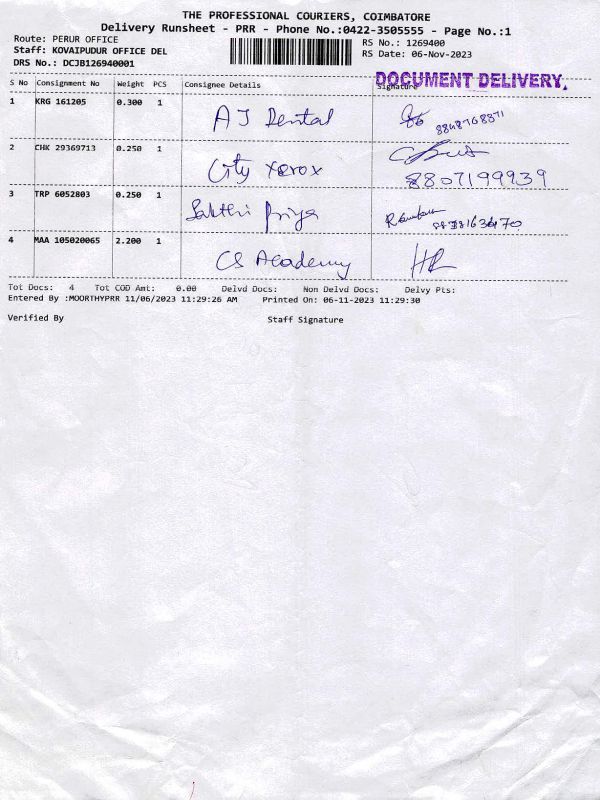 THE PROFESSIONAL COURIERS, COIMBATORE
Delivery Runsheet - PRR - Phone No.:0422-3505555 - Page No.:1
Route: PERUR OFFICE
Staff: KOVAIPUDUR OFFICE DEL
DRS No.: DCJB126940001
RS No.: 1269400
RS Date: 06-Nov-2023
DOCUMENT DELIVERY.
S No Consignment No Weight PCS Consignee Details Signature
1 KRG 161205 0.300 1 AJ Dental
2 CHK 29369713 0.250 1 City Xerox
8807199939
3 TRP 6052803 0.250 1 Sakthi Priya
4 MAA 105020065 2.200 1 CS Academy HR
Tot Docs: 4 Tot COD Amt: 0.00 Delvd Docs: Non Delvd Docs: Delvy Pts:
Entered By :MOORTHYPRR 11/06/2023 11:29:26 AM Printed On: 06-11-2023 11:29:30
Verified By Staff Signature